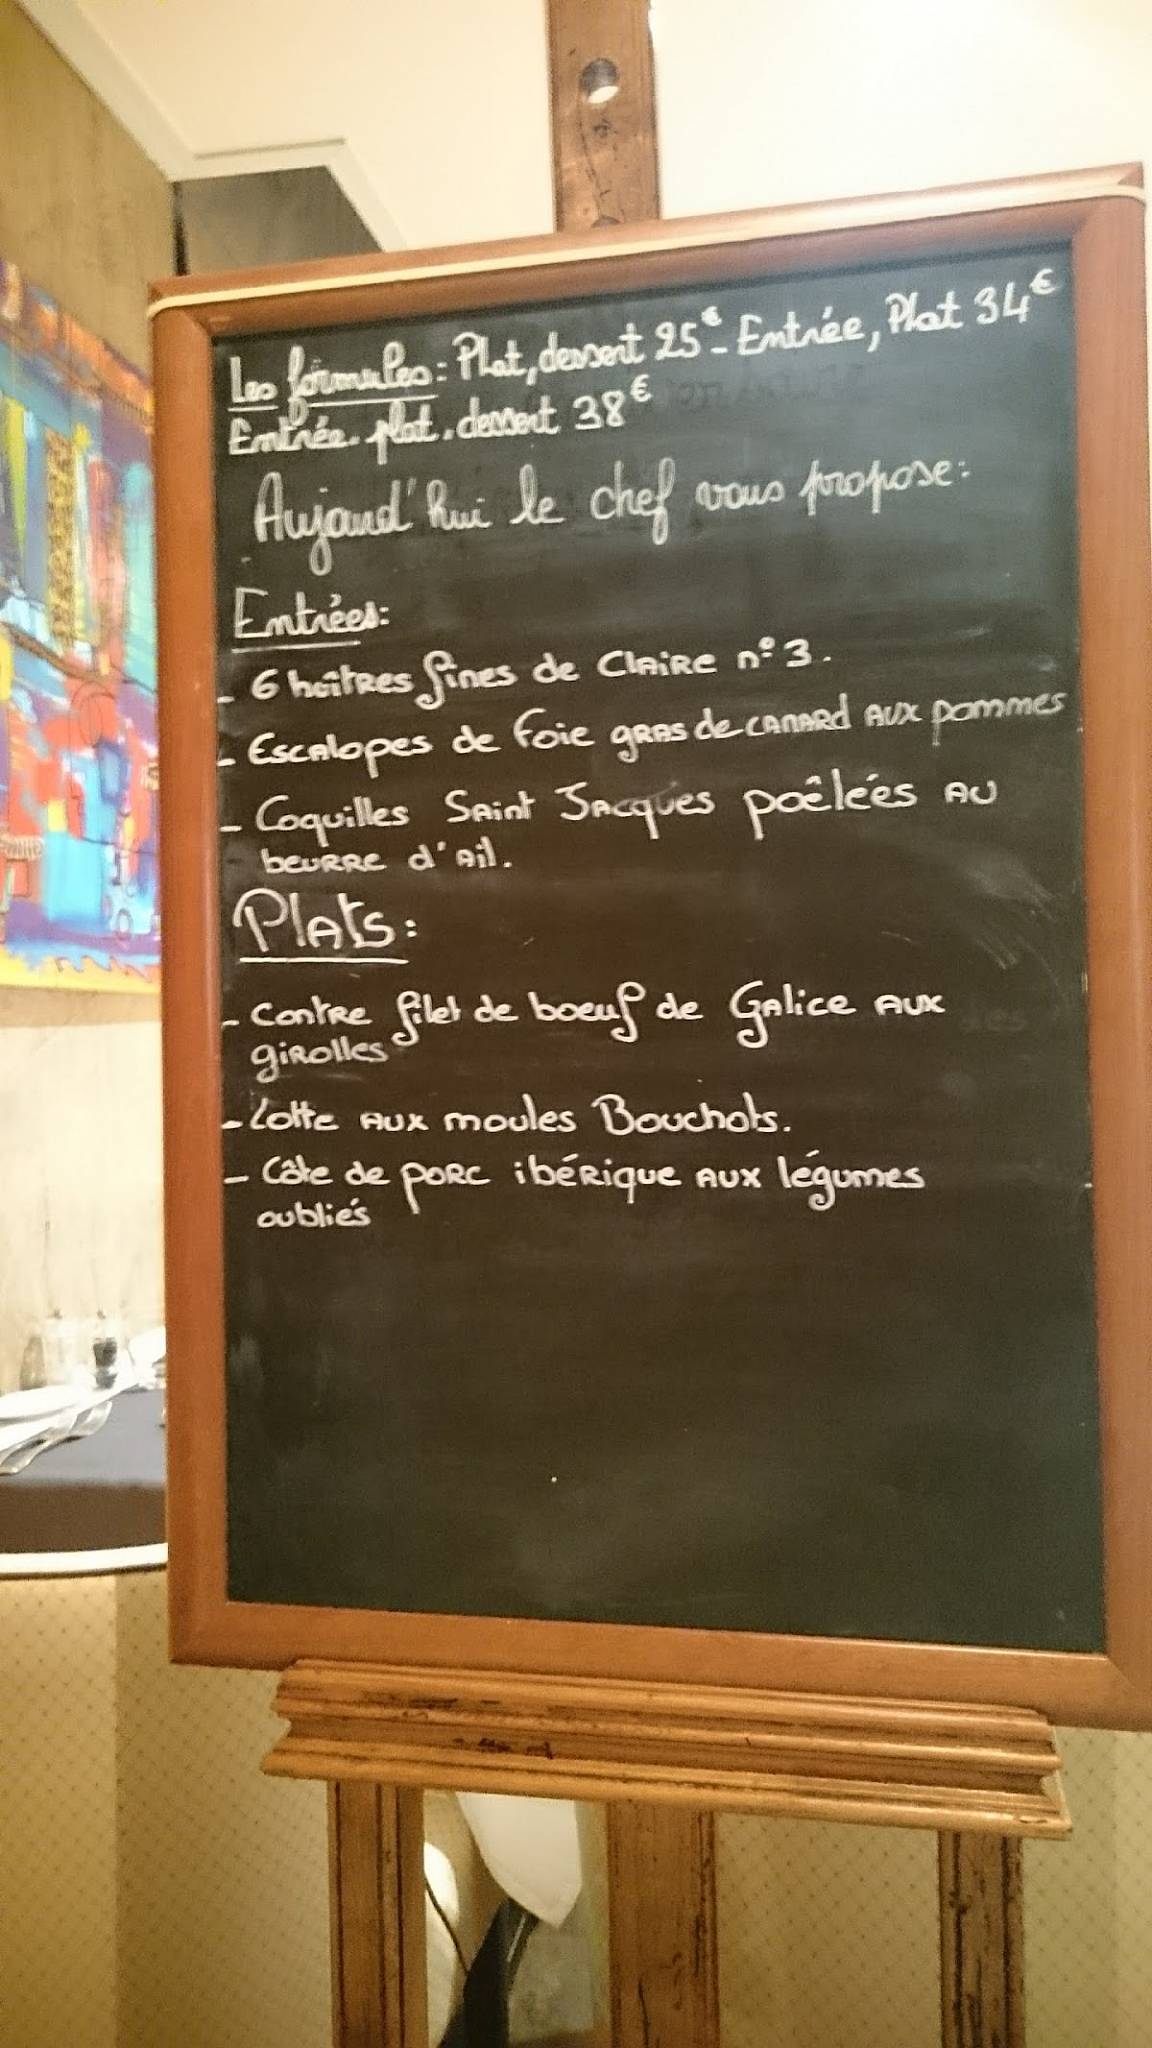 Les formules: Plat, dessert 25€ - Entrée, Plat 34€
Entrée. plat. dessert 38€
Aujourd'hui le chef vous propose:
Entrées:
- 6 huîtres fines de Claire n° 3.
- Escalopes de foie gras de canard aux pommes
- Coquilles Saint Jacques poêlées au
beurre d'ail.
Plats:
- Contre filet de boeuf de Galice aux
girolles
- Lotte aux moules Bouchots.
- Côte de porc ibérique aux légumes
oubliés